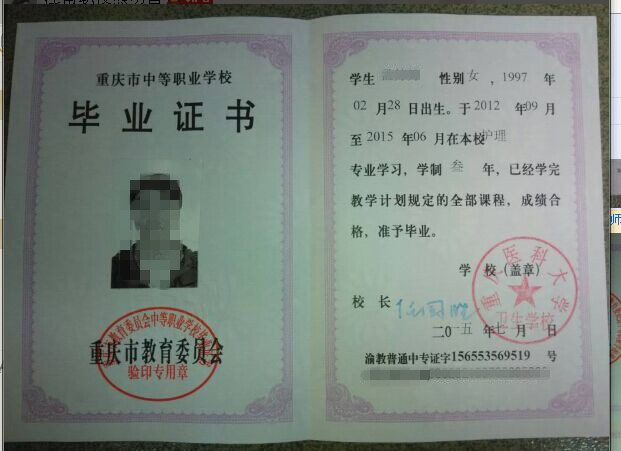 重庆市中等职业学校
毕业证书
重庆市教育委员会
验印专用章
学生 性别 女, 1997 年
02 月 28 日出生。于 2012 年 09 月
至 2015 年 06 月在本校 护理
专业学习, 学制 叁 年, 已经学完
教学计划规定的全部课程, 成绩合
格, 准予毕业。
学 校 (盖章)
重庆医科大学
卫生学校
校 长
二〇一五 年 七 月 日
渝教普通中专证字156553569519 号